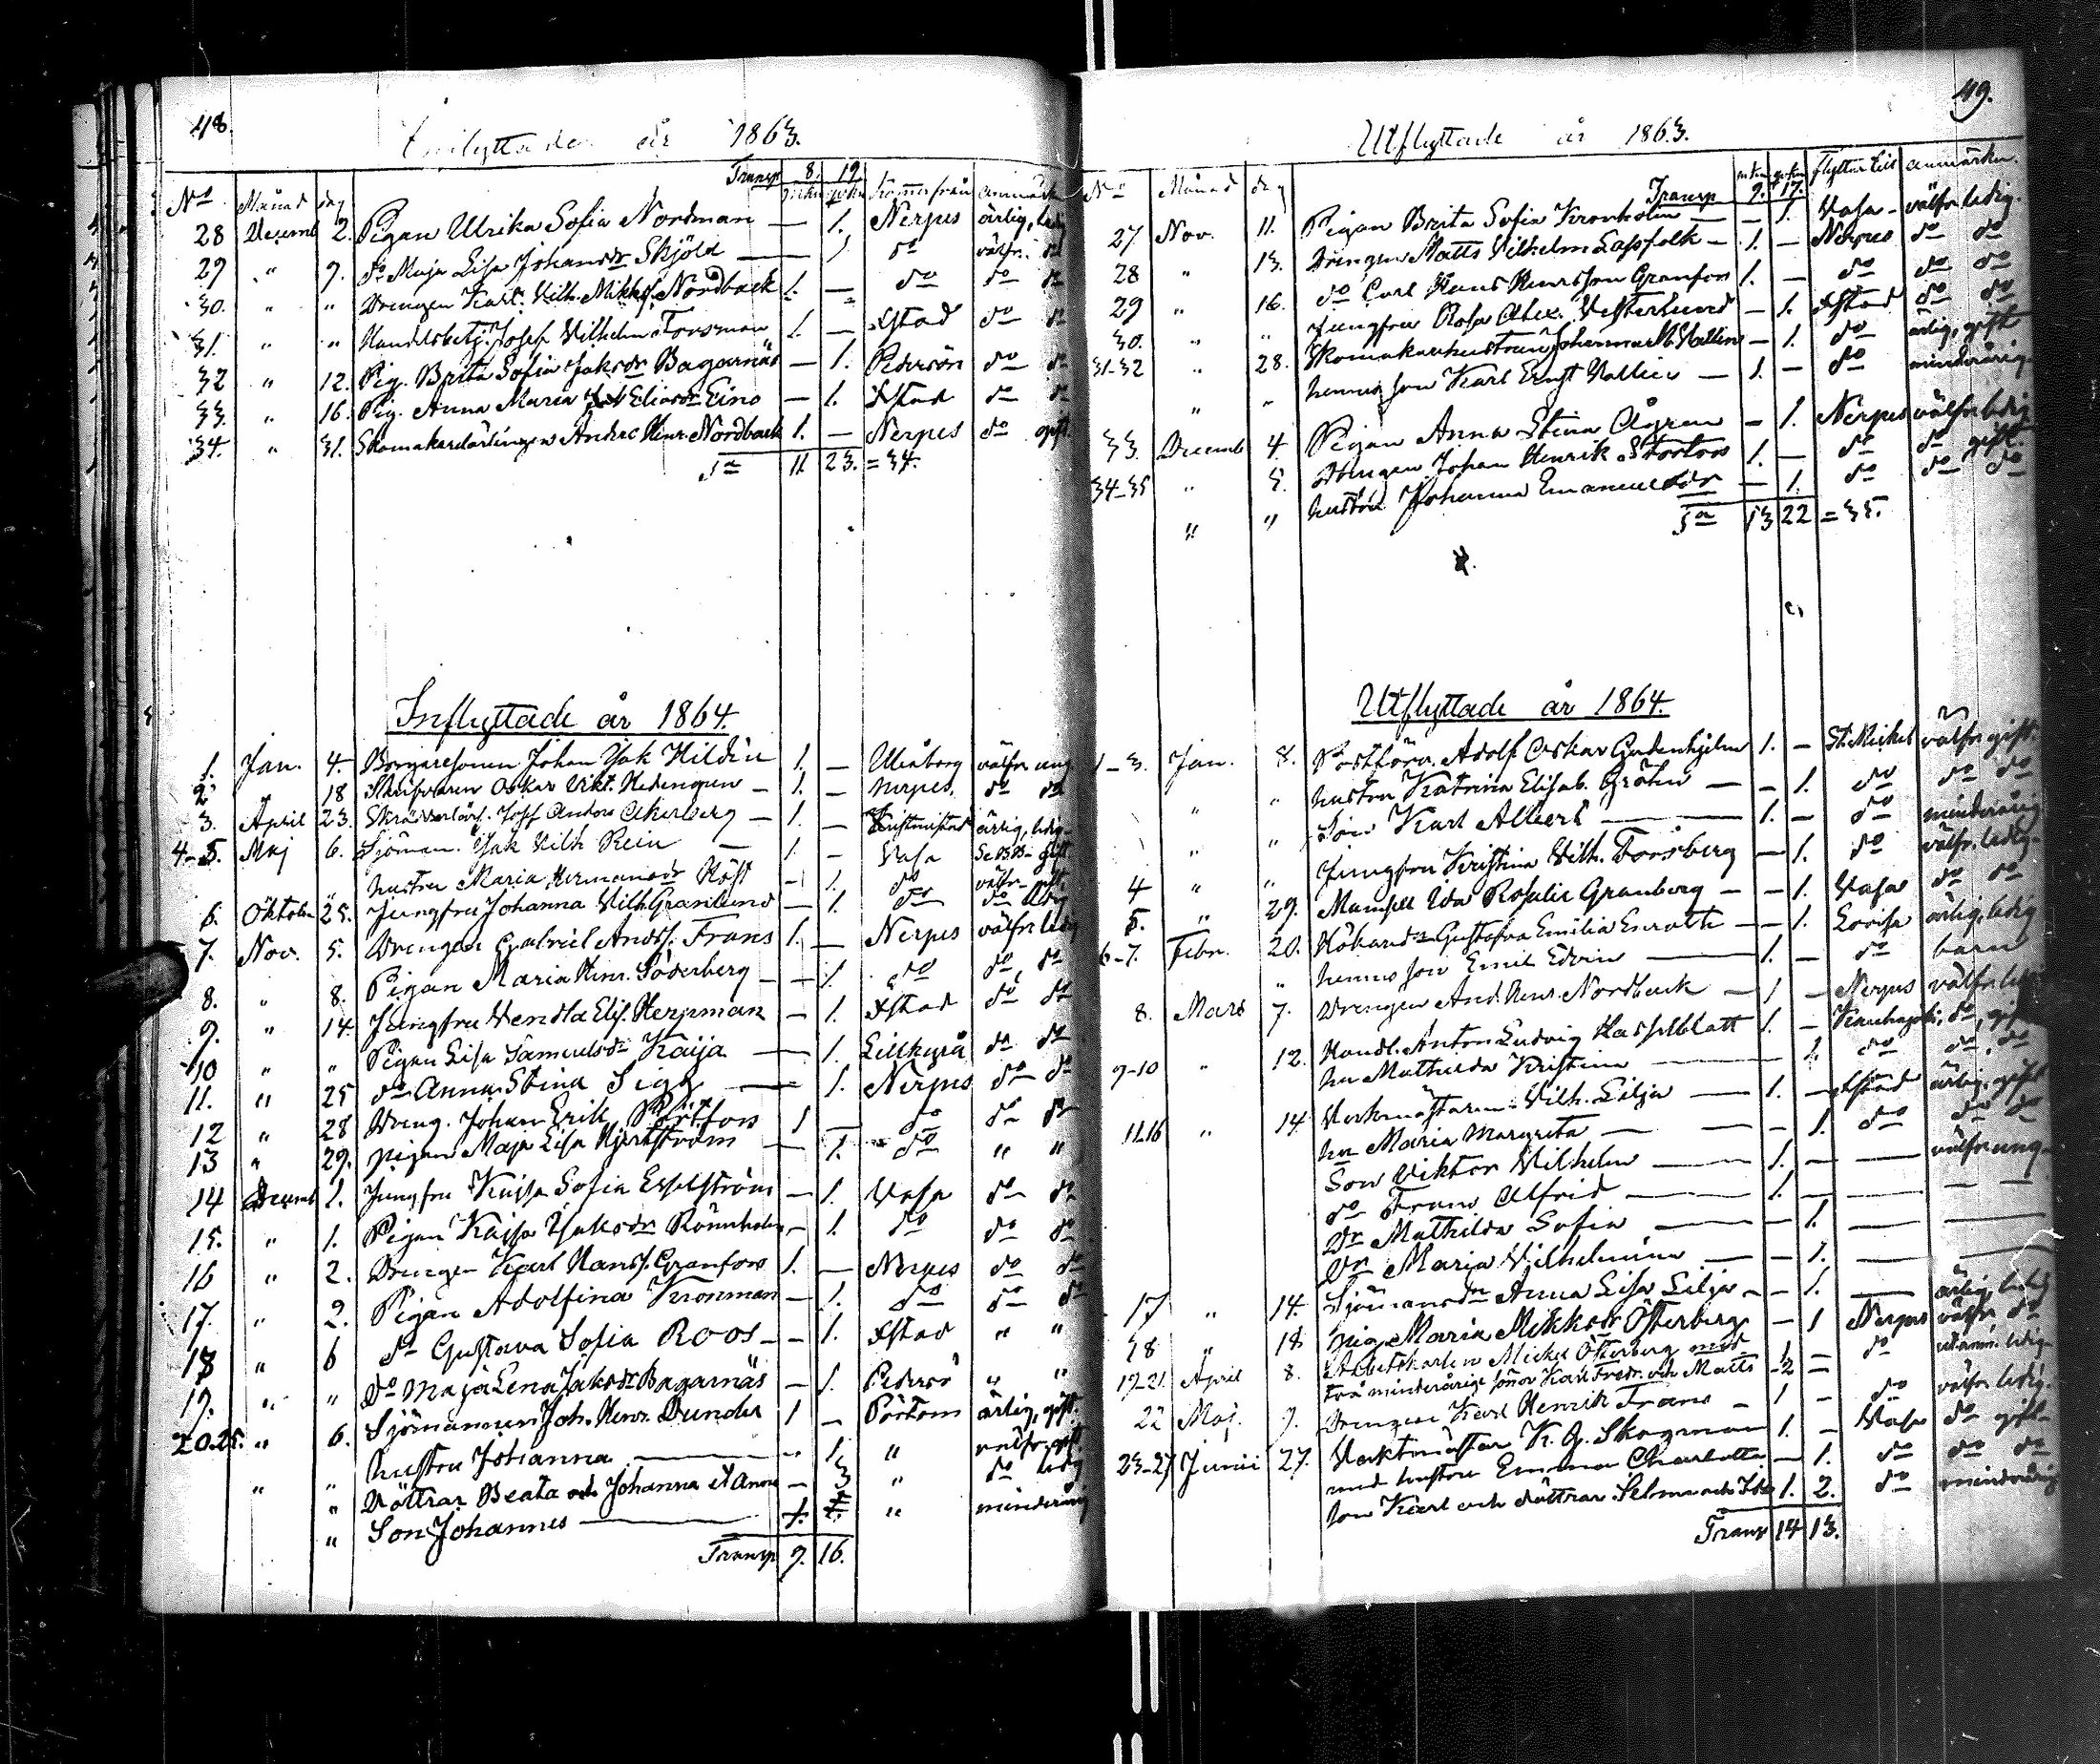 48.
Inflyttade år 1863.
Transp 8. 19.
No Månad dag mkn qvkn kommer från anmärkn
28 Decemb 2. Pigan Ulrika Sofia Nordman — 1. Nerpes ärlig, ledig
29 " 9. do Maja Lisa Johansdr Skjöld — 1 do välfr. do
30. " " Drengen Karl Vilh. Mikkelss. Nordback 1. — do do do
31. " " Handelsbetj. Josef Vilhelm Forsman 1. — Xstad do do
32 " 12. Pig. Brita Sofia Jaksdr Bagarnäs — 1. Pedersöre do do
33. " 16. Pig. Anna Maria Eliasdr Eino — 1. Xstad do do
34. " 31. Skomakarlärlingen Anders Hinr. Nordback 1. — Nerpes do gift
Sa 11 23. = 34.
Inflyttade år 1864.
1. Jan. 4. Borgaresonen Johan Isak Hildén 1. — Uleåborg välfr. ung
2 " 18 Skrifvaren Oskar Vikt. Hedengren — 1. — Nerpes. do do
3. April 23. Skräddarlärl. Josef Anders Åkerberg — 1. — Kristinestad ärlig, ledig
4-5. Maj 6. Sjöman. Isak Vilh. Rein — 1. — Vasa gift
hustru Maria Hermansdr Höst — 1. do välfr. gift
6. Oktober 25. Jungfru Johanna Vilh. Granlund — 1. do do ledig
7. Nov. 5. Drengen Gabriel Andss. Frans 1. — Nerpes välfr. ledig
8. " 8. Pigan Maria Hinr. Söderberg — 1. do do do
9. " 14. Jungfru Vendla Elis. Herpman — 1. Xstad do do
10 " " Pigan Lisa Samuelsdr Kaija — 1. Lillkyrå do do
11. " 25 do Anna Stina Sigg — 1. Nerpes do do
12 " 28 Dreng. Johan Erik Pärtfors 1 — do do do
13 " 29. pigan Maja Lisa Hjertström — 1. do " "
14 Decemb 1. Jungfru Kajsa Sofia Esselström — 1. Vasa do do
15. " 1. Pigan Kajsa Isaksdr Rönnholm — 1. do do do
16 " 2. Drengen Karl Hanss. Granfors 1. — Nerpes do do
17. " 2. Pigan Adolfina Kronman — 1. do do do
18 " 6 do Gustava Sofia Roos — 1. Xstad " "
19. " " do Maja Lena Jaksdr Bagarnäs — 1. Pedersö " "
20-25. " 6. Sjömannen Joh. Henr. Dunder 1 — Pörtom ärlig, gift.
" " hustru Johanna — 1. " välfr. gift.
" Döttrar Beata och Johanna — 3 " do ledig
" Son Johannes — 1. " minderårig
Transp 9. 16.
49.
Utflyttade år 1863.
Transp 9. 17.
No Månad dag mkn qvkn flyttar till anmärkn.
27. Nov. 11. Pigan Brita Sofia Kronholm — 1. Vasa välfr. ledig.
28 " 13. Drengen Matts Vilhelm Lassfolk — 1. — Nerpes do do
29 " 16. do Carl Hans Henrsson Granfors 1. — do do do
30. " " Jungfru Rosa Alex. Vesterlund — 1. Xstad do do
31-32 " 28. Skomakarehustrun Johanna M. Vallin — 1. do ärlig, gift
" " hennes son Karl Ernst Vallin — 1. — do minderårig
33. Decemb 4. Pigan Anna Stina Ågren — 1. Nerpes välfr. ledig
34-35 " 5. Drengen Johan Henrik Storfors 1. — do do gift.
" " hustru Johanna Emanuelsdr — 1. do do do
Sa 13 22 = 35.
Utflyttade år 1864.
1-3. Jan. 8. Postförv. Adolf Oskar Gadenhjelm 1. — St. Mickel välfr. gift.
" hustru Katrina Elisab. Gröhn — 1. do do do
" " Son Karl Albert — 1. — do minderårig
4 " " Jungfru Kristina Vilh. Forsberg — 1. do välfr. ledig.
5. " 29. Mamsell Ida Rosalie Granberg — 1. Vasa do do
6-7. Febr. 20. Gustafva Emilia Enroth — 1. Lovisa ärlig, ledig
" hennes son Emil Edvin — 1. — do barn
8. Mars 7. Drengen And. Henr. Nordback — 1 — Nerpes välfr. ledig
9-10 " 12. Handl. Anton Ludvig Hasselblatt 1. — Kauhajoki, do, gift
hu Mathilda Kristina — 1. do do do
11-16 " 14. Verkmästaren Vilh. Lilja — 1. — Xstad ärlig, gift
hu Maria Margreta — 1. do do do
Son Viktor Vilhelm — 1. — — välfr. ung
do Frans Alfrid — 1. — — —
Dr Mathilda Sofia — 1. — —
Dr Maria Vilhelmina — 1. — —
17 " 14. Sjömansdr Anna Lisa Lilja — 1. — ärlig, ledig
18 " 18. pig. Maria Mikkelsdr Österberg — 1 Nerpes välfr. do
19-21. April 8. Arbetskarlen Mickel Österberg med 1 — do ledig
två minderårige söner Karl Fredr. och Matts 2 —
22 Maj. 9. Drengen Karl Henrik Frans — 1 — do välfr. ledig.
23-27 Junii 27. Vaktmästar K. G. Skogman 1. — Vasa do gift
med hustru Emma Charlotta — 1. do do do
Son Karl och döttrar Selma och Ida 1. 2. do minderårig
Transp 14 13.